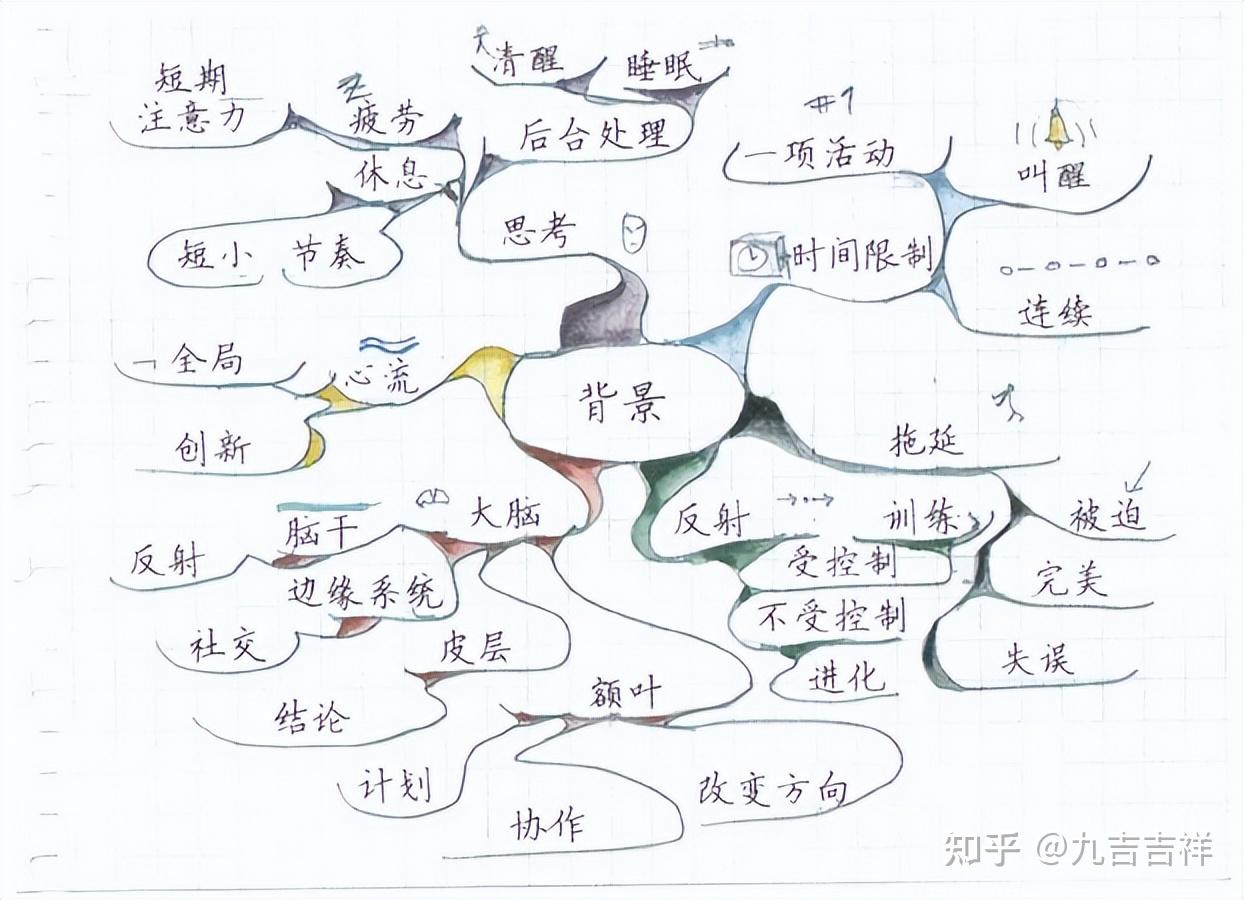 清醒
睡眠
后台处理
短期
注意力
疲劳
休息
短小
节奏
思考
#1
一项活动
叫醒
时间限制
连续
全局
心流
创新
背景
拖延
被迫
完美
失误
大脑
脑干
反射
边缘系统
社交
皮层
结论
额叶
计划
协作
改变方向
反射
训练
受控制
不受控制
进化
知乎 @九吉吉祥